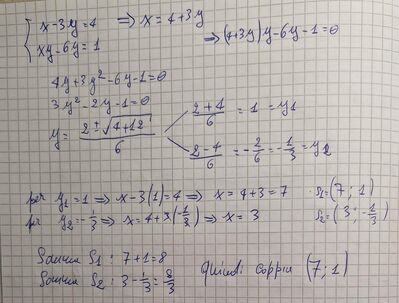 { x-3y=4 ⇒ x=4+3y
xy-6y=1 ⇒ (4+3y)y-6y-1=0
4y+3y²-6y-1=0
3y²-2y-1=0
y= (2±√(4+12))/6
(2+4)/6 = 1 = y1
(2-4)/6 = -2/6 = -1/3 = y2
per y1=1 ⇒ x-3(1)=4 ⇒ x=4+3=7 S1=(7;1)
per y2=-1/3 ⇒ x=4+3(-1/3) ⇒ x=3 S2=(3;-1/3)
Somma S1: 7+1=8
Somma S2: 3-1/3=8/3 Quindi coppia (7;1)